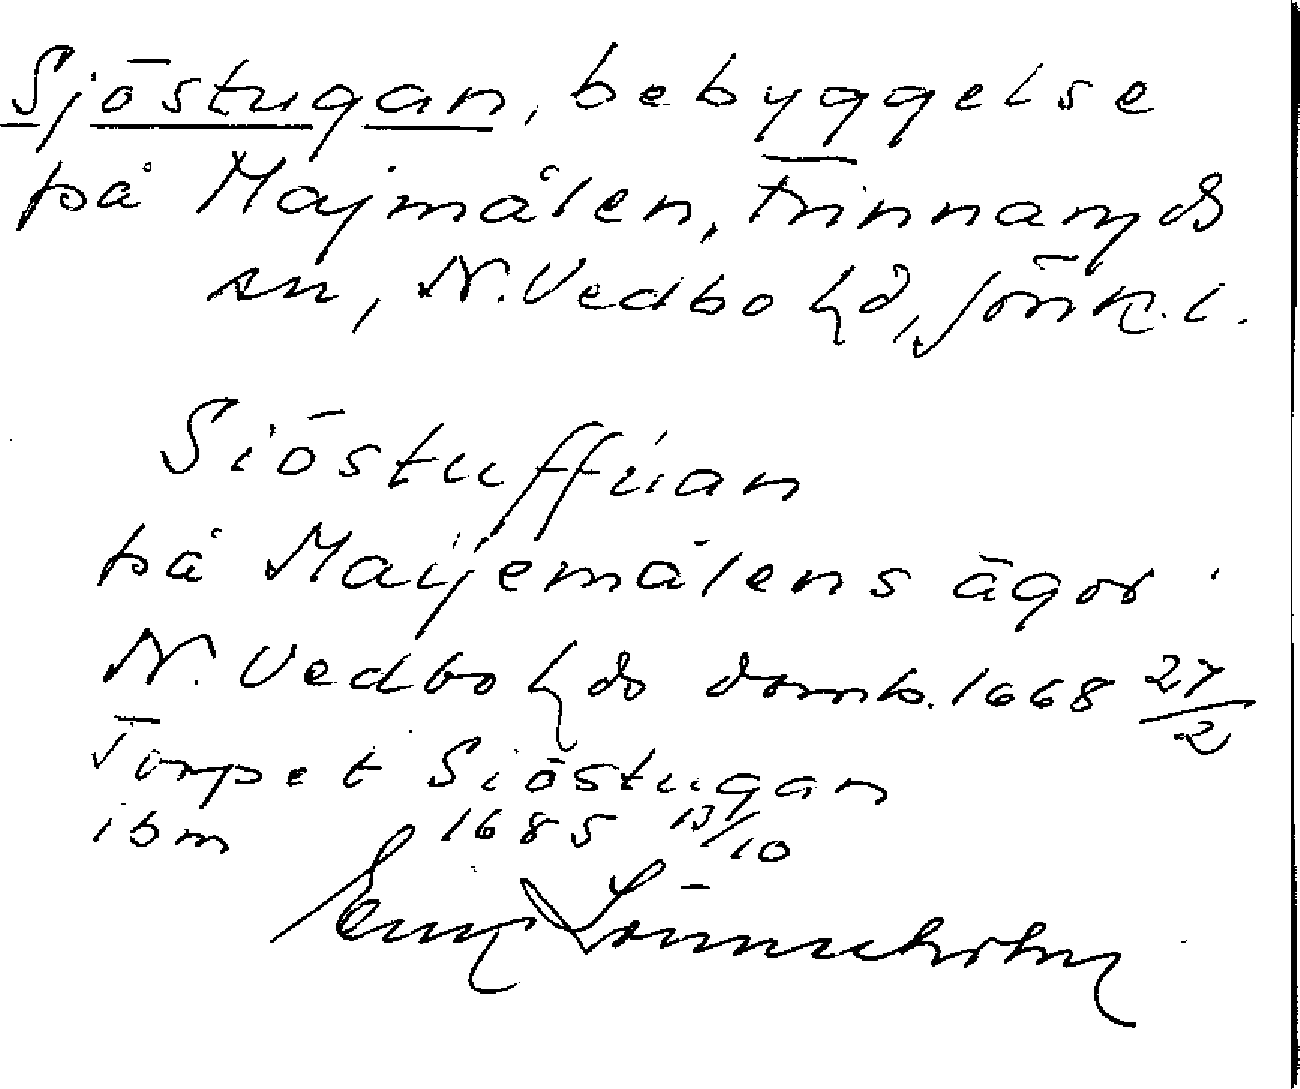 Sjöstugan, bebyggelse
på Majmålen, Frinnaryds
sn, N. Vedbo hd, Jönk. l.
Siöstuffúan
på Maijemålens ägor
N. Vedbo hds domb. 1668 27/2
Torpet Siöstugan
ibm 1685 13/10